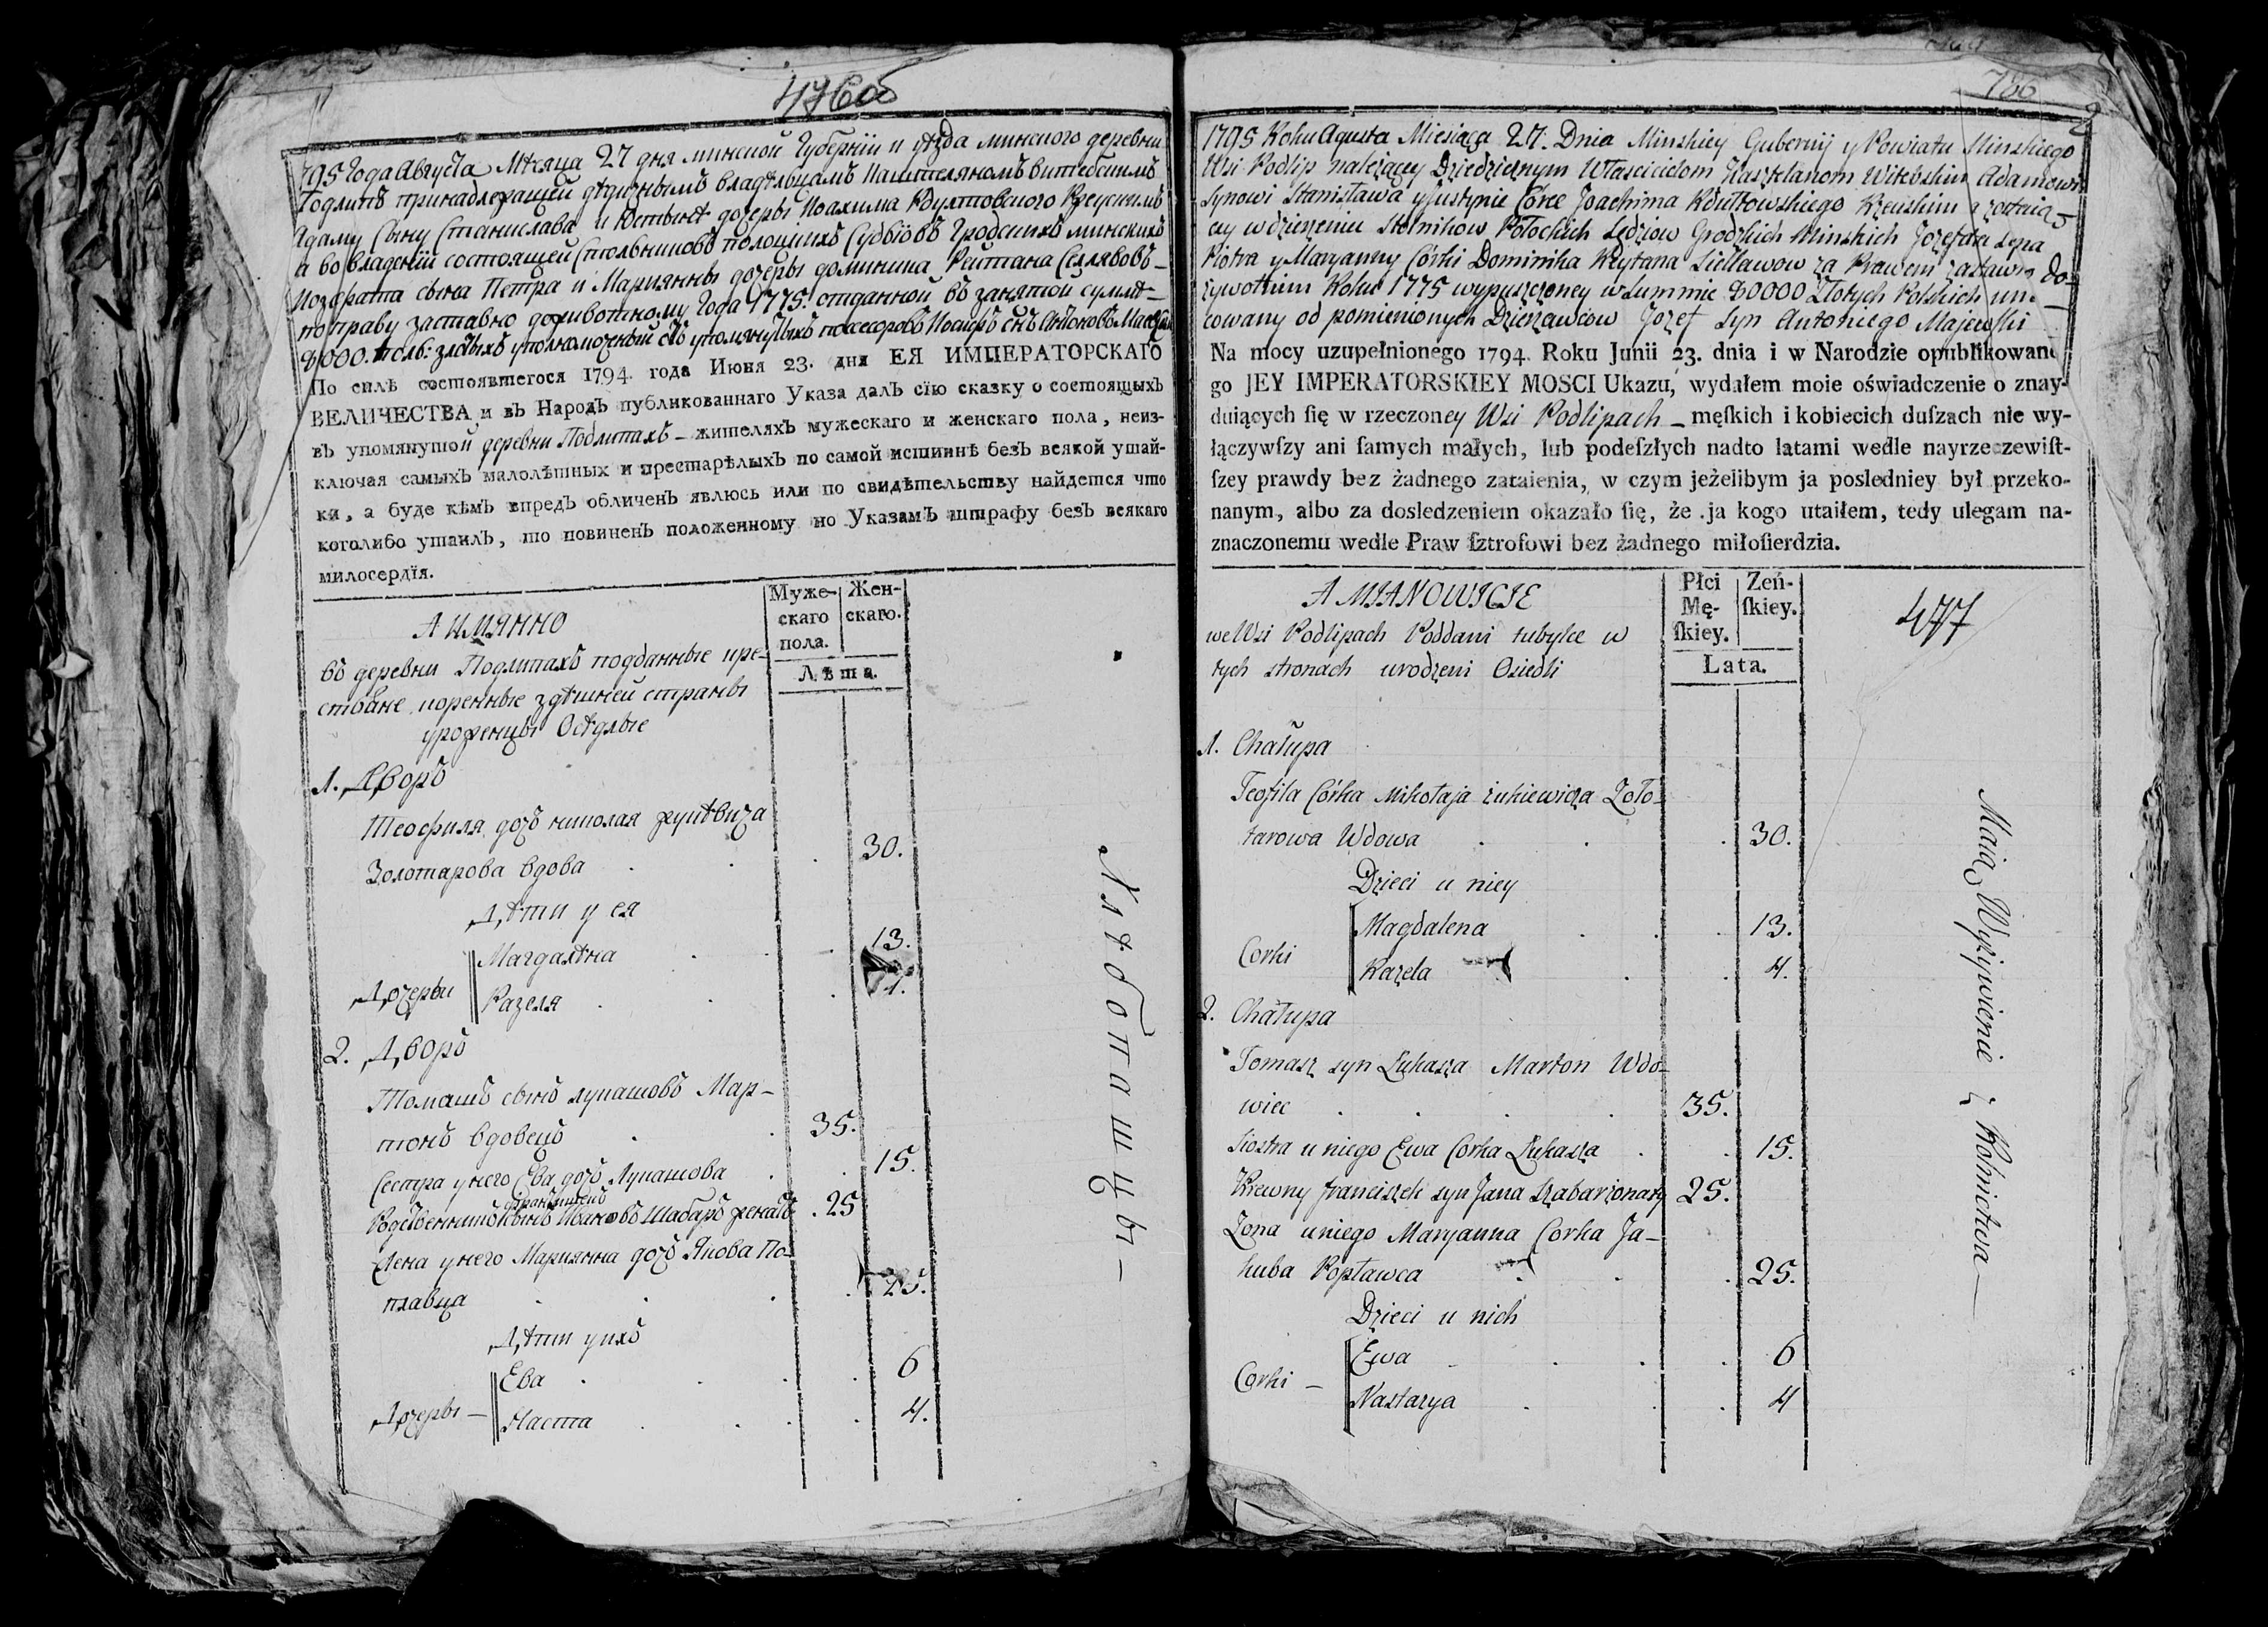 476об
1795 Года Августа Мѣсяца 27 дня минской Губерніи и уѣзда минского деревни
Подлипъ принадлежащей дѣдичнымъ владѣльцамъ Каштеляномъ витебскимъ
Адаму Сыну Станислава и Юстынѣ дочеры Іоахима
а во владеніи состоящей Стольниковъ полоцкихъ Судьіовъ Гродскихъ минскихъ
Іозефата сына Петра и Марианны дочеры доминика Рейтана Селлявовъ
по праву заставно доживотному Года 1775. отданной въ занятой суммѣ
8000. поль: злотыхъ уполномоченный отъ упомянутыхъ поссесоровъ Іосифъ снъ Антоновъ
По силѣ состоявшегося 1794 года Июня 23. дня ЕЯ ИМПЕРАТОРСКАГО
ВЕЛИЧЕСТВА и въ Народъ публикованнаго Указа далъ сїю сказку о состоящыхъ
въ упомянутой деревни Подлипахъ – жителяхъ мужескаго и женскаго пола, неиз-
ключая самыхъ малолѣтныхъ и престарѣлыхъ по самой истиннѣ безъ всякой утай-
ки, а буде кѣмъ впредъ обличенъ явлюсь или по свидѣтельству найдется что
коголибо утаилъ, то повиненъ положенному по Указамъ штрафу безъ всякаго
милосердїя.
А ИМЯННО
Муже-
скаго
пола.
Жен-
скаго.
Лѣта.
въ деревни Подлипахъ подданные кре-
стьяне коренные здѣшней страны
уроженцы Осѣдлые
1. Дворъ
Теофиля дочъ николая жукѣвича
Золотарова вдова . . . 30.
Дѣти у ея
Дочеры
Магдалѣна . . 13.
Разеля . . . 4.
2. Дворъ
Томашъ сынъ лукашовъ Мар-
тонъ вдовецъ . . 35.
Сестра унего Ева дочъ Лукашова . . 15.
Францишекъ
Родственникъ сынъ Ивановъ шабаръ женатъ . 25
Жена унего Марианна дочъ Якова По-
плавца . . . . 25.
Дѣти ихъ
Дочеры –
Ева . . . . 6
Наста . . . . 4.
Хлѣбопашцы –
786
1795 Roku Agusta Miesiąca 27. Dnia Minskiey Gubernij y Powiatu Minskiego
Wsi Podlip należącey Dziedzicznym Właścicielom Kasztelanom Witebskim Adamowi
Synowi Stanisława y Justynie Córce Joachima
cey w dzierżeniu Stolnikow Połockich Sędziow Grodzkich Minskich Jozefata Syna
Piotra y Maryanny Córki Dominika Reytana Siellawow za Prawem zastawno do-
żywotnim Roku 1775 wypuszczoney w Summie 8000 Złotych Polskich um.
cowany od pomienionych Dzierżawcow Jozef Syn Antoniego Majewski
Na mocy uzupełnionego 1794. Roku Junii 23. dnia i w Narodzie opublikowane
go JEY IMPERATORSKIEY MOSCI Ukazu, wydałem moie oświadczenie o znay-
duiących ſię w rzeczoney Wsi Podlipach – męſkich i kobiecich duſzach nie wy-
łączywſzy ani ſamych małych, lub podeſzłych nadto latami wedle nayrzeczewiſt-
ſzey prawdy bez żadnego zataienia, w czym jeżelibym ja posledniey był przeko-
nanym, albo za dosledzeniem okazało ſię, że ja kogo utaiłem, tedy ulegam na-
znaczonemu wedle Praw ſztrofowi bez żadnego miłoſierdzia.
A MIANOWICIE
Płci
Mę-
ſkiey.
Zeń-
ſkiey.
Lata.
477
we Wsi Podlipach Poddani tubylce w
tych stronach urodzeni Osiedli
1. Chałupa
Teofila Córka Mikołaja żukiewicza Zoło-
tarowa Wdowa . . . 30.
Dzieci u niey
Corki
Magdalena . . . 13.
Razela . . 4.
2. Chałupa
Tomasz syn Łukasza Marton Wdo-
wiec . . . . 35.
Siostra u niego Ewa Corka Łukasza . . 15.
Krewny franciszek syn Jana Szabar żonaty 25.
Zona u niego Maryanna Corka Ja-
kuba Popławca . . . 25.
Dzieci u nich
Corki –
Ewa . . . 6
Nastazya . . . 4
Maią Wyżywienie z Rolnictwa –